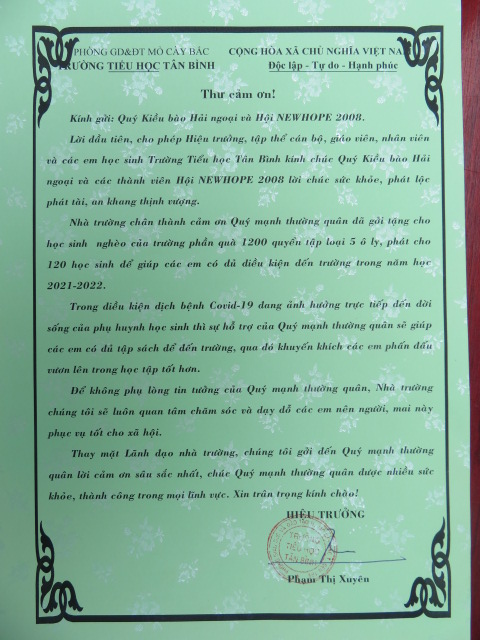 PHÒNG GD&ĐT MỎ CÀY BẮC
CỘNG HÒA XÃ CHỦ NGHĨA VIỆT NAM
TRƯỜNG TIỂU HỌC TÂN BÌNH
Độc lập - Tự do - Hạnh phúc
Thư cảm ơn!
Kính gửi: Quý Kiều bào Hải ngoại và Hội NEWHOPE 2008.
Lời đầu tiên, cho phép Hiệu trưởng, tập thể cán bộ, giáo viên, nhân viên
và các em học sinh Trường Tiểu học Tân Bình kính chúc Quý Kiều bào Hải
ngoại và các thành viên Hội NEWHOPE 2008 lời chúc sức khỏe, phát lộc
phát tài, an khang thịnh vượng.
Nhà trường chân thành cảm ơn Quý mạnh thường quân đã gửi tặng cho
học sinh nghèo của trường phần quà 1200 quyển tập loại 5 ô ly, phát cho
120 học sinh để giúp các em có đủ điều kiện đến trường trong năm học
2021-2022.
Trong điều kiện dịch bệnh Covid-19 đang ảnh hưởng trực tiếp đến đời
sống của phụ huynh học sinh thì sự hỗ trợ của Quý mạnh thường quân sẽ giúp
các em có đủ tập sách để đến trường, qua đó khuyến khích các em phấn đấu
vươn lên trong học tập tốt hơn.
Để không phụ lòng tin tưởng của Quý mạnh thường quân, Nhà trường
chúng tôi sẽ luôn quan tâm chăm sóc và dạy dỗ các em nên người, mai này
phục vụ tốt cho xã hội.
Thay mặt Lãnh đạo nhà trường, chúng tôi gởi đến Quý mạnh thường
quân lời cảm ơn sâu sắc nhất, chúc Quý mạnh thường quân được nhiều sức
khỏe, thành công trong mọi lĩnh vực. Xin trân trọng kính chào!
HIỆU TRƯỞNG
TRƯỜNG
TIỂU HỌC
TÂN BÌNH
Phạm Thị Xuyên